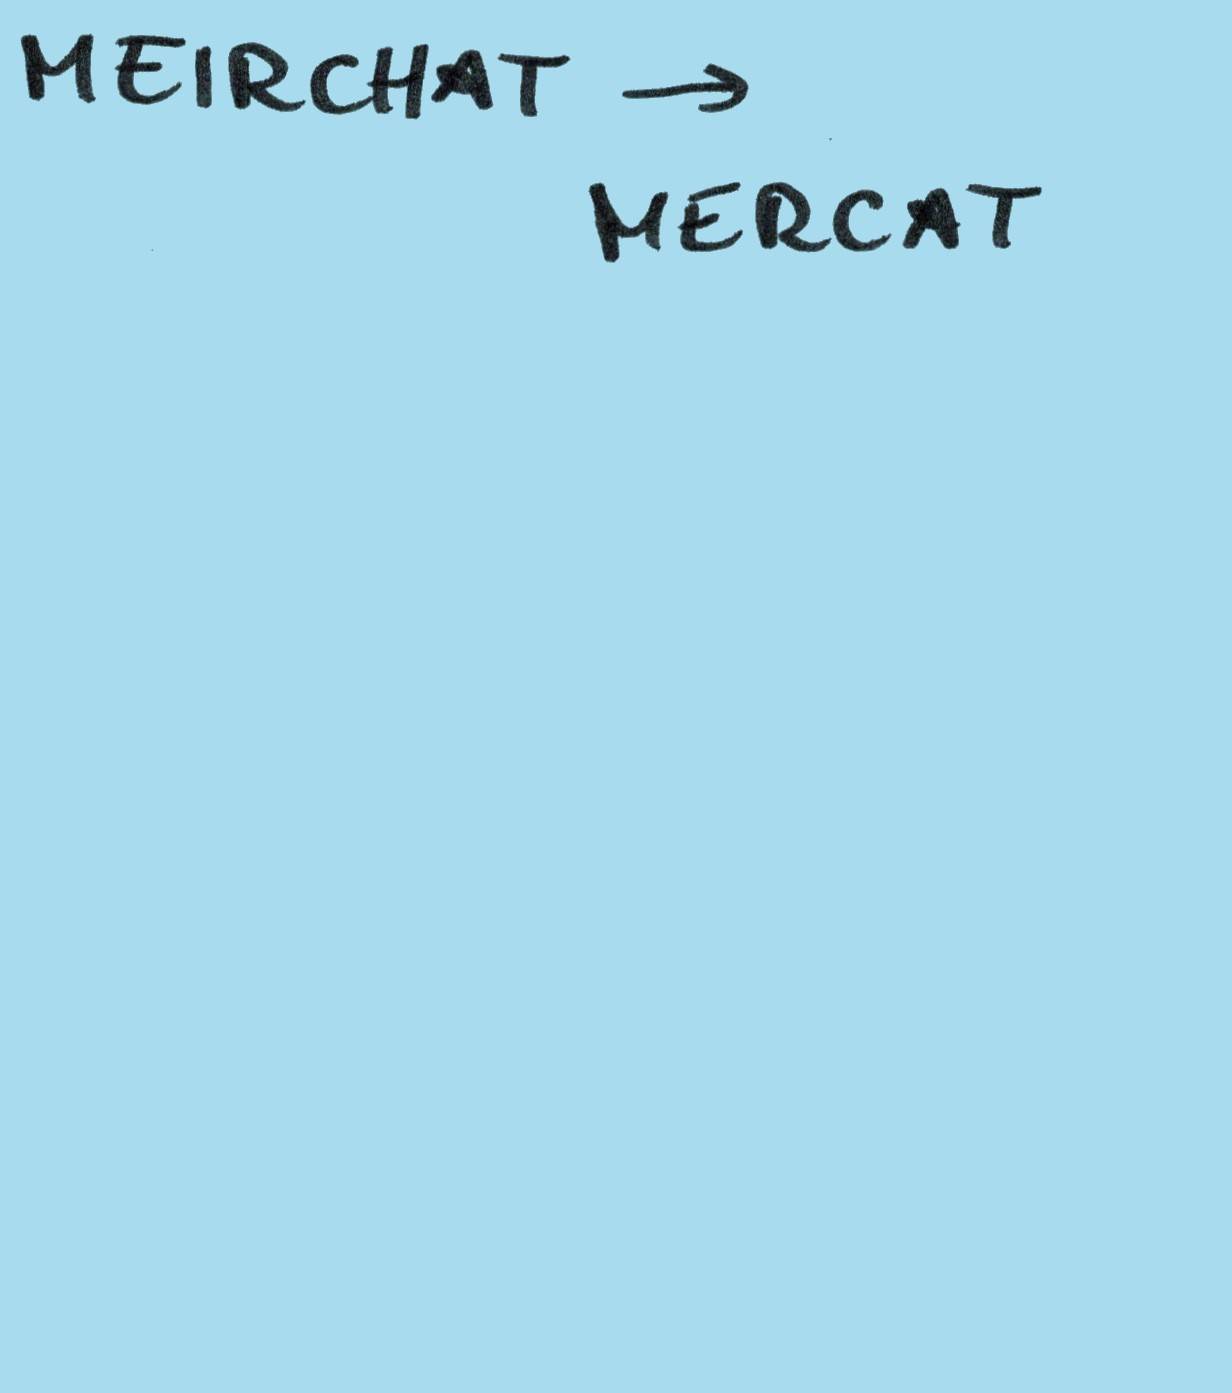 MEIRCHAT →
MERCAT